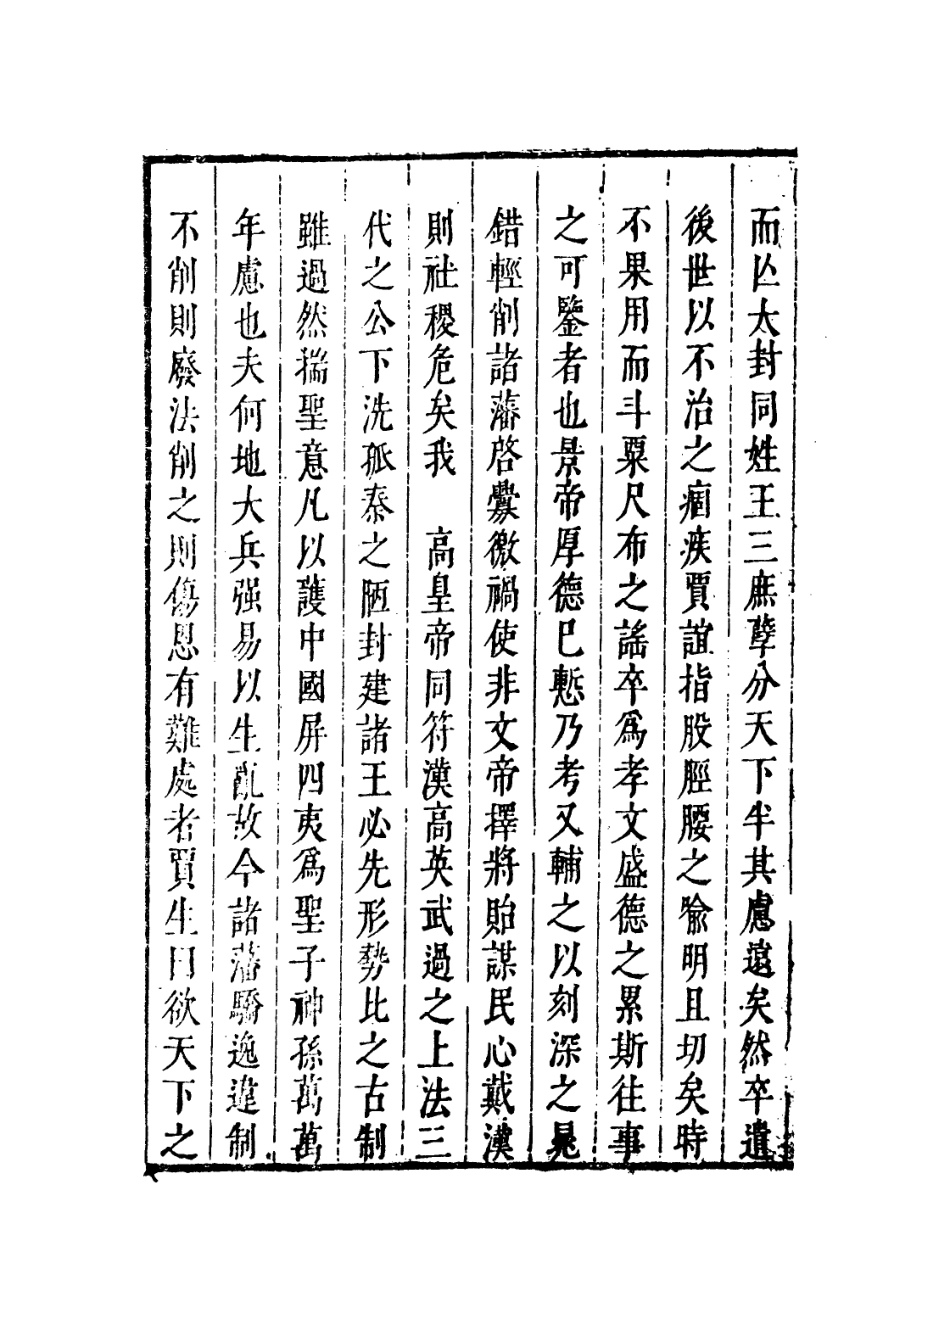 而亾太封同姓王三庶孽分天下半其慮遠矣然卒遺
後世以不治之痼疾賈誼指股脛腰之喻明且切矣時
不果用而斗粟尺布之謠卒爲孝文盛德之累斯徃事
之可鑒者也景帝厚德已慙乃考又輔之以刻深之晁
錯輕削諸藩啓釁徼禍使非文帝擇將貽謀民心戴漢
則社稷危矣我　高皇帝同符漢高英武過之上法三
代之公下洗孤秦之陋封建諸王必先形勢比之古制
雖過然揣聖意凡以護中國屏四夷爲聖子神孫萬萬
年慮也夫何地大兵强易以生亂故今諸藩驕逸違制
不削則廢法削之則傷恩有難處者賈生曰欲天下之